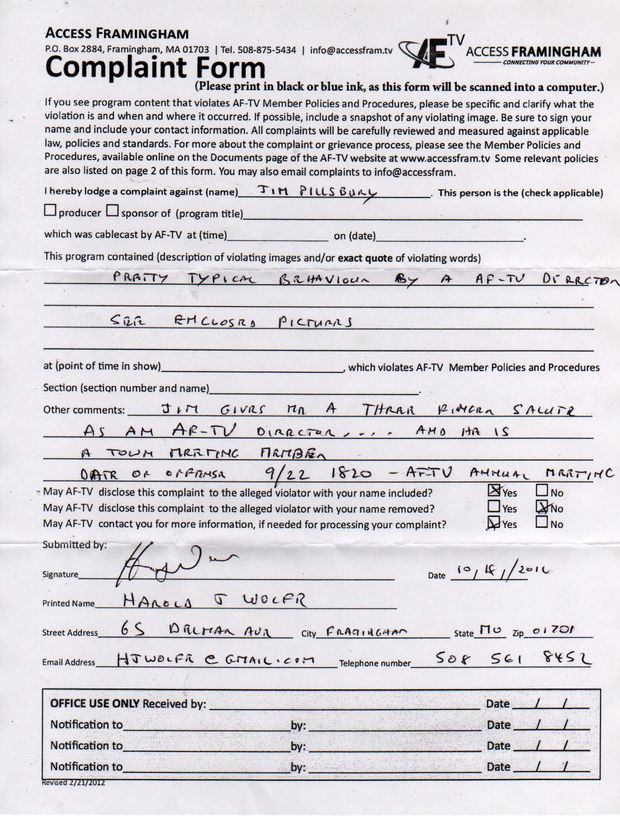 ACCESS FRAMINGHAM
P.O. Box 2884, Framingham, MA 01703 | Tel. 508-875-5434 | info@accessfram.tv
AF TV ACCESS FRAMINGHAM
CONNECTING YOUR COMMUNITY
Complaint Form
(Please print in black or blue ink, as this form will be scanned into a computer.)
If you see program content that violates AF-TV Member Policies and Procedures, please be specific and clarify what the
violation is and when and where it occurred. If possible, include a snapshot of any violating image. Be sure to sign your
name and include your contact information. All complaints will be carefully reviewed and measured against applicable
law, policies and standards. For more about the complaint or grievance process, please see the Member Policies and
Procedures, available online on the Documents page of the AF-TV website at www.accessfram.tv Some relevant policies
are also listed on page 2 of this form. You may also email complaints to info@accessfram.
I hereby lodge a complaint against (name) JIM PILLSBURY. This person is the (check applicable)
producer sponsor of (program title)
which was cablecast by AF-TV at (time) on (date).
This program contained (description of violating images and/or exact quote of violating words)
PRETTY TYPICAL BEHAVIOUR BY A AF-TV DIRECTOR
SEE ENCLOSED PICTURES
at (point of time in show), which violates AF-TV Member Policies and Procedures
Section (section number and name).
Other comments: JIM GIVES ME A THREE FINGER SALUTE
AS AN AF-TV DIRECTOR.... AND HE IS
A TOWN MEETING MEMBER
DATE OF OFFENSE 9/22 1820 - AFTV ANNUAL MEETING
May AF-TV disclose this complaint to the alleged violator with your name included? Yes No
May AF-TV disclose this complaint to the alleged violator with your name removed? Yes No
May AF-TV contact you for more information, if needed for processing your complaint? Yes No
Submitted by:
Signature Date 10/18/2016
Printed Name HAROLD J WOLFE
Street Address 65 DELMAR AVE City FRAMINGHAM State MA Zip 01701
Email Address HJWOLFE@GMAIL.COM Telephone number 508 561 8452
OFFICE USE ONLY Received by: Date / /
Notification to by: Date / /
Notification to by: Date / /
Notification to by: Date / /
Revised 2/21/2012